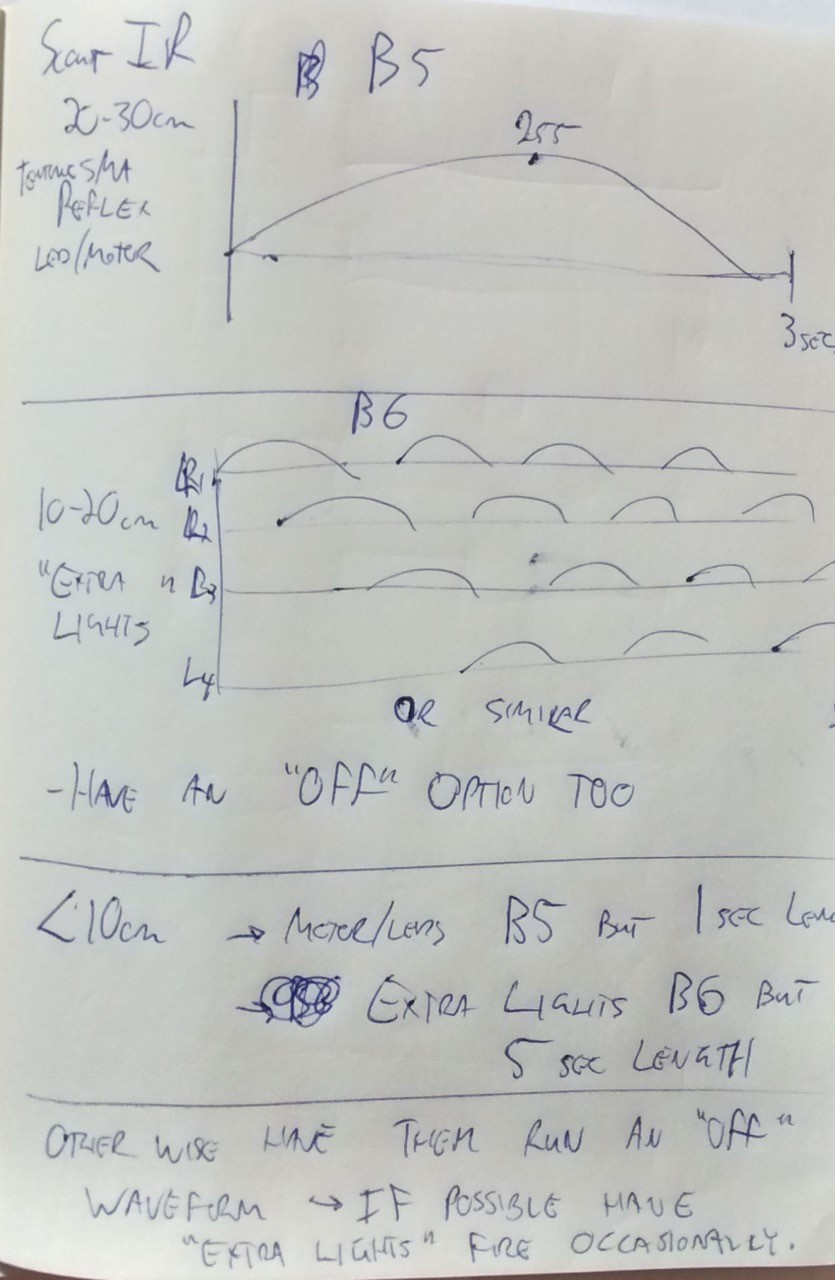 Scout IR
B5
20-30cm
255
SMA
REFLEX
LED/MOTOR
3 SEC
B6
10-20cm
"EXTRA"
LIGHTS
L4
OR SIMILAR
-HAVE AN "OFF" OPTION TOO
<10cm → MOTOR/LEDS B5 BUT 1 SEC LEN
→ EXTRA LIGHTS B6 BUT
5 SEC LENGTH
OTHER WISE HAVE THEM RUN AN "OFF"
WAVEFORM → IF POSSIBLE HAVE
"EXTRA LIGHTS" FIRE OCCASIONALLY.